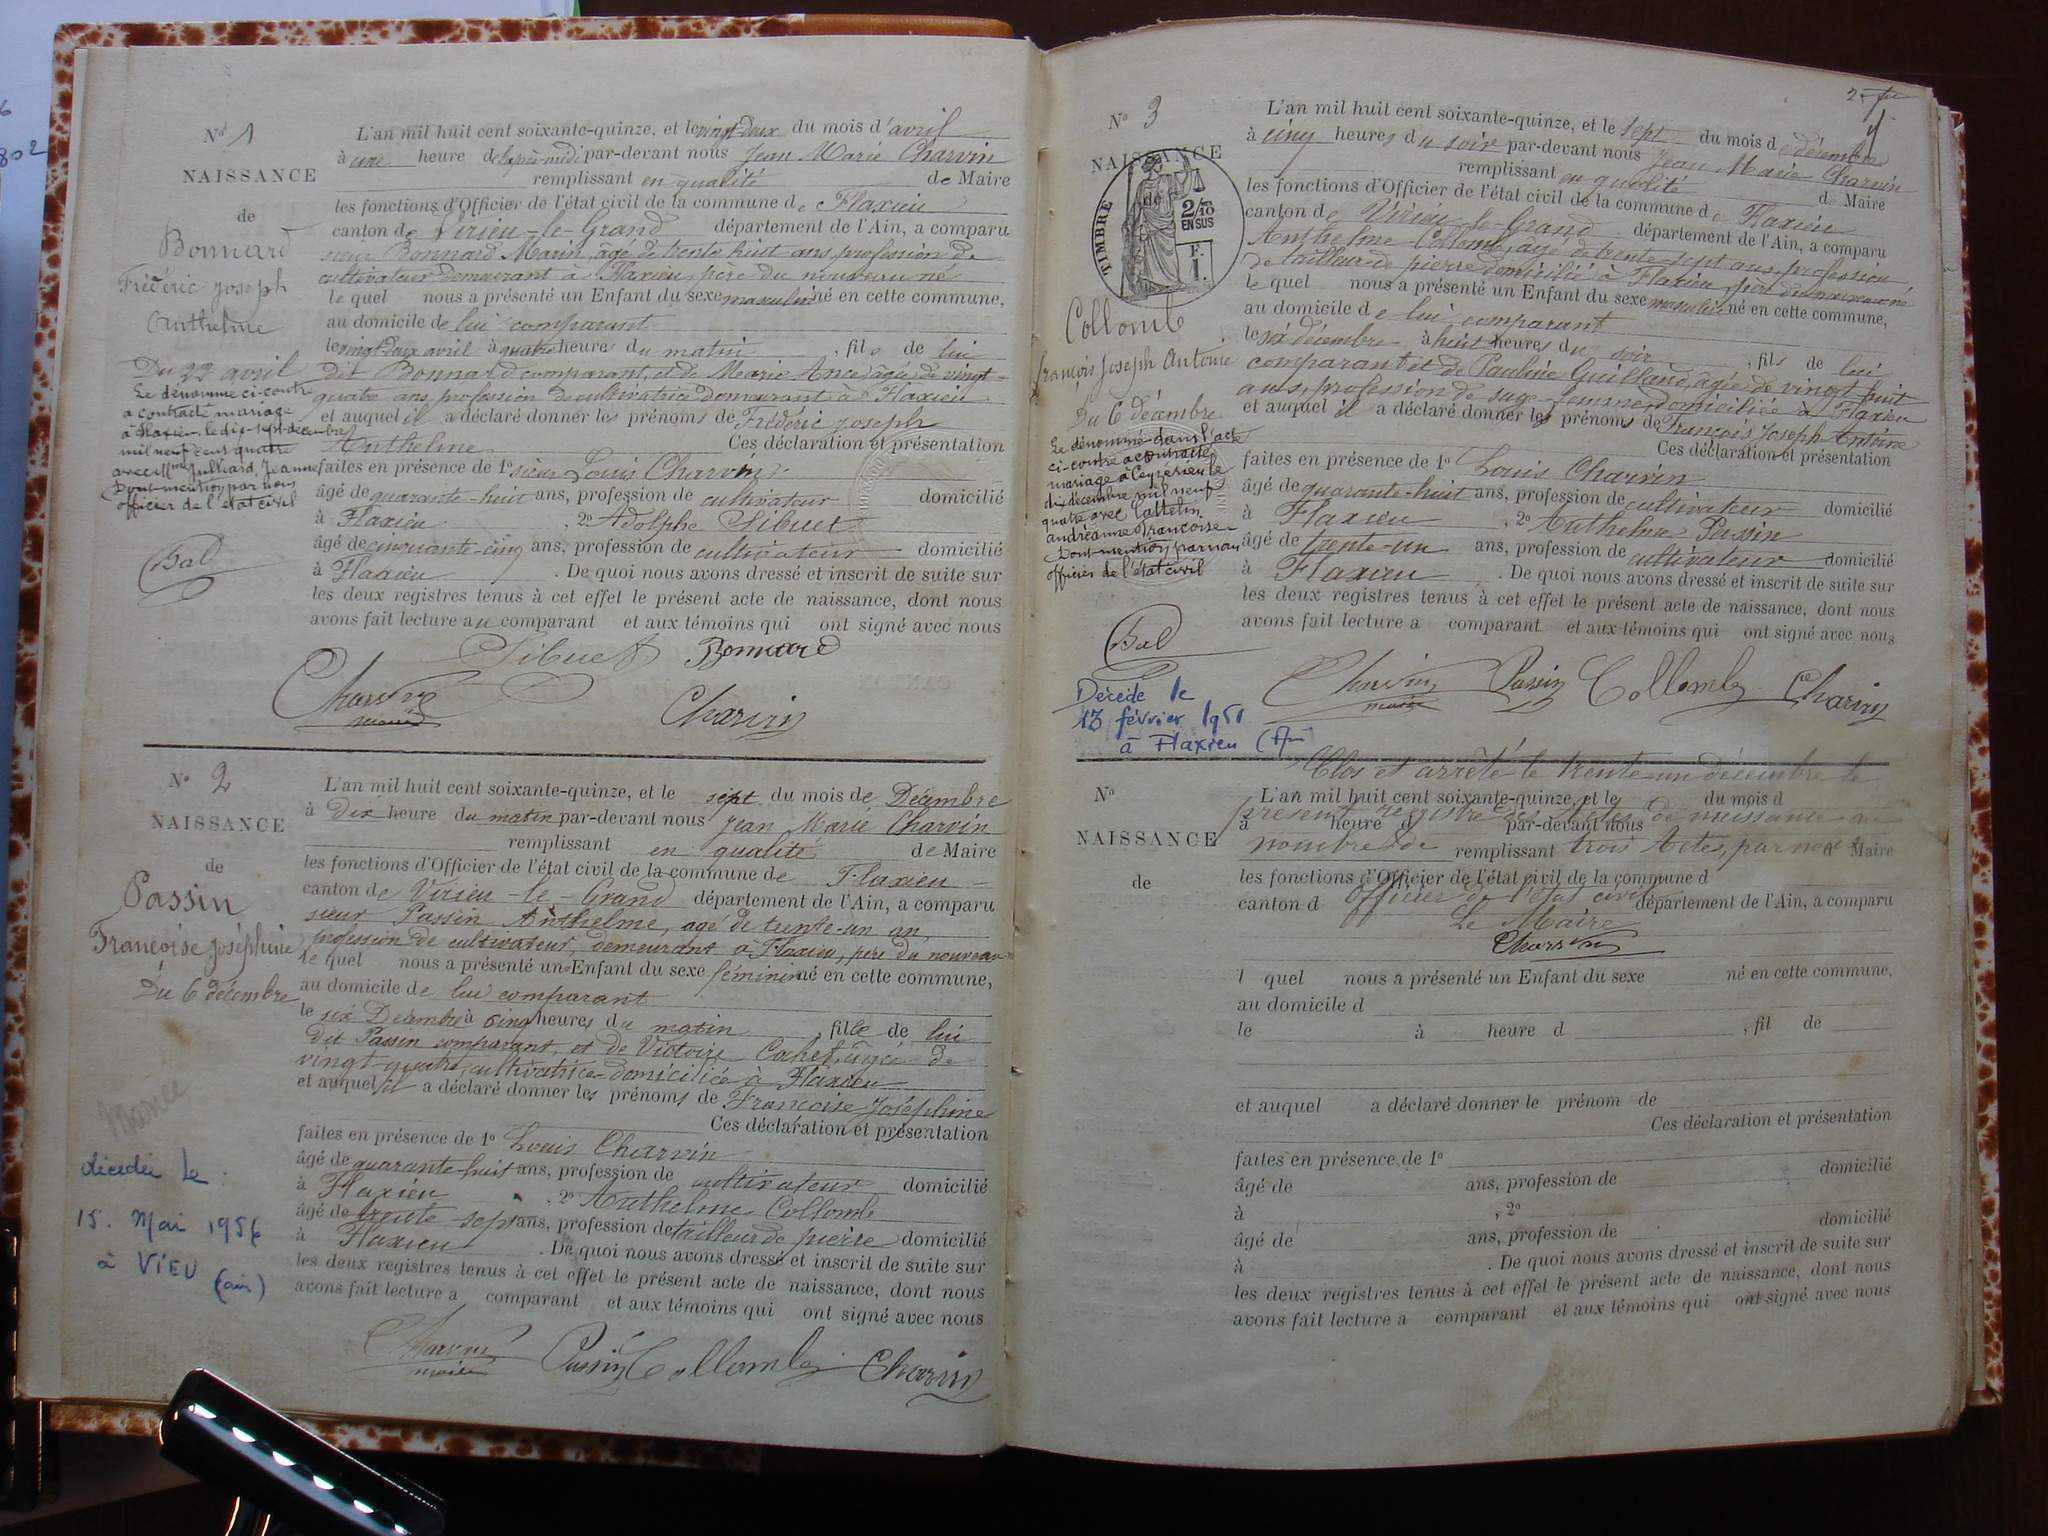 No 1
NAISSANCE
de
Bonnard
Frédéric Joseph
Anthelme
Du 22 avril
Le dénommé ci-contre
a contracté mariage
à Flaxieu le dix-sept décembre
mil neuf cent quatre
avec Mme Julliard, Jeanne
Dont mention par nous
officier de l'état civil
Bal
L'an mil huit cent soixante-quinze, et le vingt-deux du mois d'avril
à une heure de l'après-midi par-devant nous Jean Marie Charvin
remplissant en qualité de Maire
les fonctions d'Officier de l'état civil de la commune de Flaxieu
canton de Virieu-le-Grand département de l'Ain, a comparu
sieur Bonnard Marin, âgé de trente huit ans profession de
cultivateur demeurant à Flaxieu, père du nouveau né
le quel nous a présenté un Enfant du sexe masculin né en cette commune,
au domicile de lui comparant
le vingt-deux avril à quatre heures du matin, fils de lui
dit Bonnard comparant, et de Marie Ance, âgée de vingt-
quatre ans, profession de cultivatrice demeurant à Flaxieu
et auquel il a déclaré donner les prénoms de Frédéric Joseph
Anthelme Ces déclaration et présentation
faites en présence de 1o sieur Louis Charvin
âgé de quarante-huit ans, profession de cultivateur domicilié
à Flaxieu, 2o Adolphe Sibuet
âgé de cinquante-cinq ans, profession de cultivateur domicilié
à Flaxieu. De quoi nous avons dressé et inscrit de suite sur
les deux registres tenus à cet effet le présent acte de naissance, dont nous
avons fait lecture au comparant et aux témoins qui ont signé avec nous
Sibuet Bonnard
Charvin
maire
Charvin
No 2
NAISSANCE
de
Passin
Françoise Joséphine
Du 6 décembre
Mariée
décédée le
15. Mai 1956
à VIEU (ain)
L'an mil huit cent soixante-quinze, et le sept du mois de Décembre
à Dix heure du matin par-devant nous Jean Marie Charvin
remplissant en qualité de Maire
les fonctions d'Officier de l'état civil de la commune de Flaxieu
canton de Virieu-le-Grand département de l'Ain, a comparu
sieur Passin Anthelme, agé de trente-un an,
profession de cultivateur, demeurant à Flaxieu, père du nouveau n
le quel nous a présenté un Enfant du sexe féminin né en cette commune,
au domicile de lui comparant
le six Décembre à cinq heures du matin, fille de lui
dit Passin comparant, et de Victoire Cochet, âgée de
vingt-quatre, cultivatrice domiciliée à Flaxieu
et auquel il a déclaré donner les prénoms de Françoise Joséphine
Ces déclaration et présentation
faites en présence de 1o Louis Charvin
âgé de quarante-huit ans, profession de cultivateur domicilié
à Flaxieu, 2o Anthelme Collomb
âgé de trente sept ans, profession de tailleur de pierre domicilié
à Flaxieu. De quoi nous avons dressé et inscrit de suite sur
les deux registres tenus à cet effet le présent acte de naissance, dont nous
avons fait lecture a comparant et aux témoins qui ont signé avec nous
Charvin
maire
Passin Collomb Charvin
No 3
NAISSANCE
de
TIMBRE
2/10
EN SUS
F.
1.
Collomb
François Joseph Antoine
Du 6 décembre
Le dénommé dans l'acte
ci-contre a contracté
mariage à Ceyzérieu le
dix décembre mil neuf
quatre avec
andréanne Françoise
Dont mention par nous
officier de l'état civil
Bal
Décédé le
13 février 1951
à Flaxieu (Ain
L'an mil huit cent soixante-quinze, et le sept du mois de décembre
à cinq heures du soir par-devant nous Jean Marie Charvin
remplissant en qualité de Maire
les fonctions d'Officier de l'état civil de la commune de Flaxieu
canton de Virieu-le-Grand département de l'Ain, a comparu
Anthelme Collomb, agé de trente-sept ans, profession
de tailleur de pierre domicilié à Flaxieu, père du nouveau né
le quel nous a présenté un Enfant du sexe masculin né en cette commune,
au domicile de lui comparant
le six décembre à huit heures du soir, fils de lui
comparant et de Pauline Guilland, âgée de vingt huit
ans, profession de sage-femme, domiciliée à Flaxieu
et auquel il a déclaré donner les prénoms de François Joseph Antoine
Ces déclaration et présentation
faites en présence de 1o Louis Charvin
âgé de quarante-huit ans, profession de cultivateur domicilié
à Flaxieu, 2o Anthelme Passin
âgé de trente-un ans, profession de cultivateur domicilié
à Flaxieu. De quoi nous avons dressé et inscrit de suite sur
les deux registres tenus à cet effet le présent acte de naissance, dont nous
avons fait lecture a comparant et aux témoins qui ont signé avec nous
Charvin
maire
Passin Collomb Charvin
Clos et arrêté le trente-un décembre le
No
NAISSANCE
de
L'an mil huit cent soixante-quinze, et le du mois d
présent registre des Actes de naissance au
à heure d par-devant nous
nombre de trois Actes, par nous
remplissant d Maire
les fonctions d'Officier de l'état civil de la commune d
Officier de l'état civil
canton d département de l'Ain, a comparu
Le Maire
Charvin
l quel nous a présenté un Enfant du sexe né en cette commune,
au domicile d
le à heure d, fil de
et auquel a déclaré donner le prénom de
Ces déclaration et présentation
faites en présence de 1o
âgé de ans, profession de domicilié
à, 2o
âgé de ans, profession de domicilié
à. De quoi nous avons dressé et inscrit de suite sur
les deux registres tenus à cet effet le présent acte de naissance, dont nous
avons fait lecture a comparant et aux témoins qui ont signé avec nous